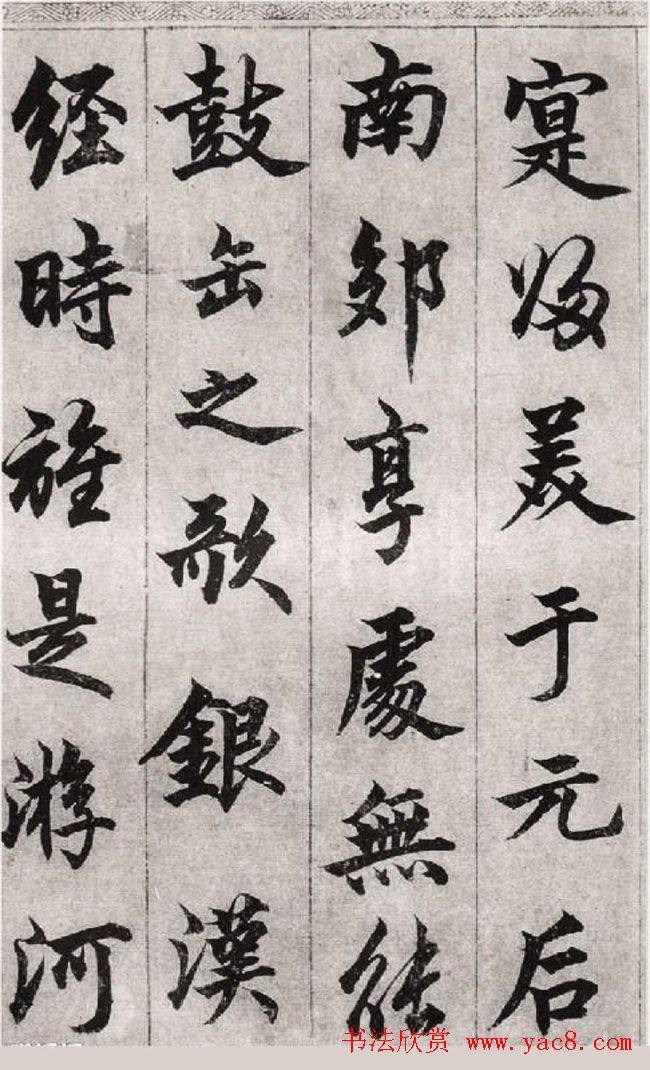 寔归美于元后
南郊享處無能
鼓缶之歌銀漢
經時旌是游河
书法欣赏 www.yac8.com